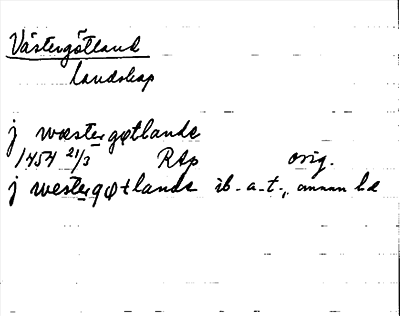 Västergötland
Landskap
j wæstergøtlande
1454 21/3 RAp orig.
j westergøtlande ib. a.t., annan hd